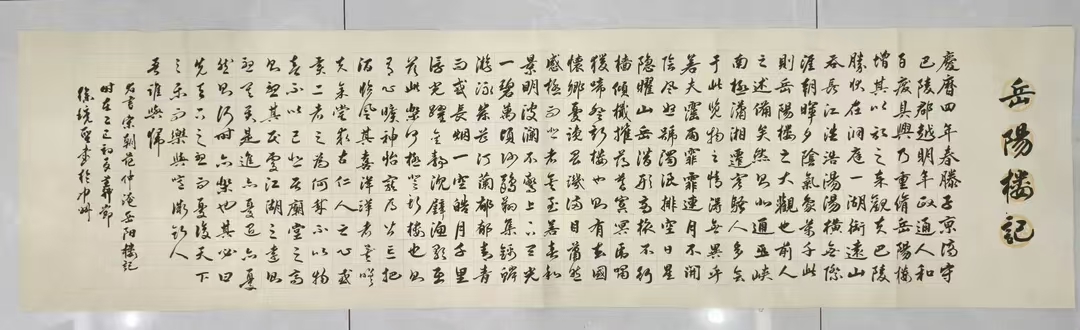 岳陽楼記
慶曆四年春滕子京謫守
巴陵郡越明年政通人和
百廢具興乃重脩岳陽樓
增其以記之予觀夫巴陵
勝狀在洞庭一湖銜遠山
吞長江浩浩湯湯橫無際
涯朝暉夕陰氣象萬千此
則岳陽樓之大觀也前人
之述備矣然則北通巫峽
南極瀟湘遷客騷人多會
于此覽物之情得無異乎
若夫霪雨霏霏連月不開
陰風怒號濁浪排空日星
隱曜山岳潛形商旅不行
檣傾檝摧薄暮冥冥虎嘯
猿啼登斯樓也則有去國
懷鄉憂讒畏譏滿目蕭然
感極而悲者矣至若春和
景明波瀾不驚上下天光
一碧萬頃沙鷗翔集錦鱗
游泳岸芷汀蘭郁郁青青
而或長烟一空皓月千里
浮光躍金静沉璧漁歌互
答此樂何極登斯樓也則
有心曠神怡寵辱皆忘把
酒臨風其喜洋洋者矣嗟
夫予嘗求古仁人之心或
異二者之為何哉不以物
喜不以己悲居廟堂之高
則憂其民處江湖之遠則
憂其君是進亦憂退亦憂
然則何時而樂也其必曰
先天下之憂而憂後天下
之樂而樂歟噫微斯人
吾誰與歸
右書宋朝范仲淹岳陽樓記
時在乙巳初夏節
徐書於中州